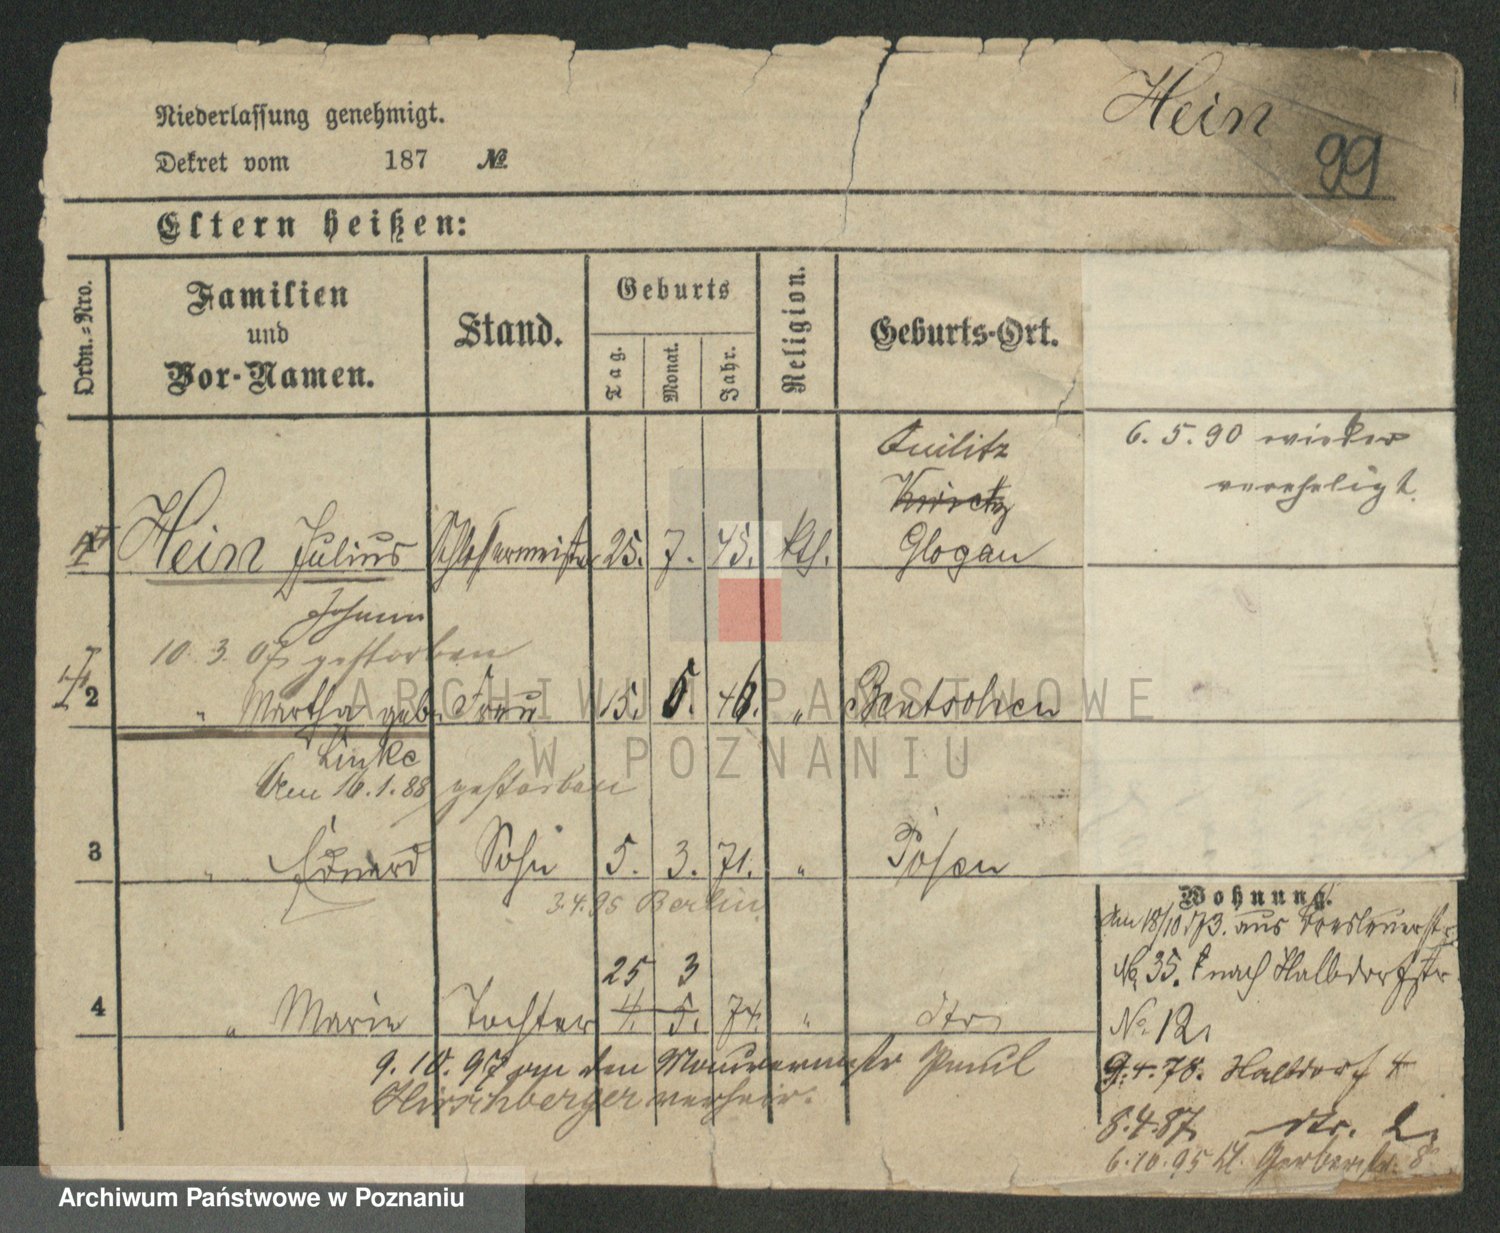 Hein
99
Niederlassung genehmigt.
Dekret vom 187 №
Eltern heißen:
Ordn.=Nro.
Familien
und
Vor-Namen.
Stand.
Geburts
Tag.
Monat.
Jahr.
Religion.
Geburts-Ort.
Quilitz
6. 5. 90 wieder
vereheligt.
1 Hein Julius Schlossermeister 25. 7. 45. kth. Glogau
Johann
10. 3. 07 gestorben
2 " Martha geb. Frau 15. 5. 46. " Bentschen
Linke
den 16.1.88 gestorben
3 " Eduard Sohn 5. 3. 71. " Posen
3.4.95 Berlin
25 3
4 " Marie Tochter 4. 5. 74. " dto
9. 10. 97 an den Maurermstr Paul
Hirschberger verheir.
Wohnung.
Am 18/10 73. aus Breslauerstr
No 35. nach Halbdorfstr
No. 12.
9.4.78. Halbdorf 4
8.4.87 dto. 2.
6.10.95 Kl. Gerberstr. 8
ARCHIWUM PAŃSTWOWE
W POZNANIU
Archiwum Państwowe w Poznaniu